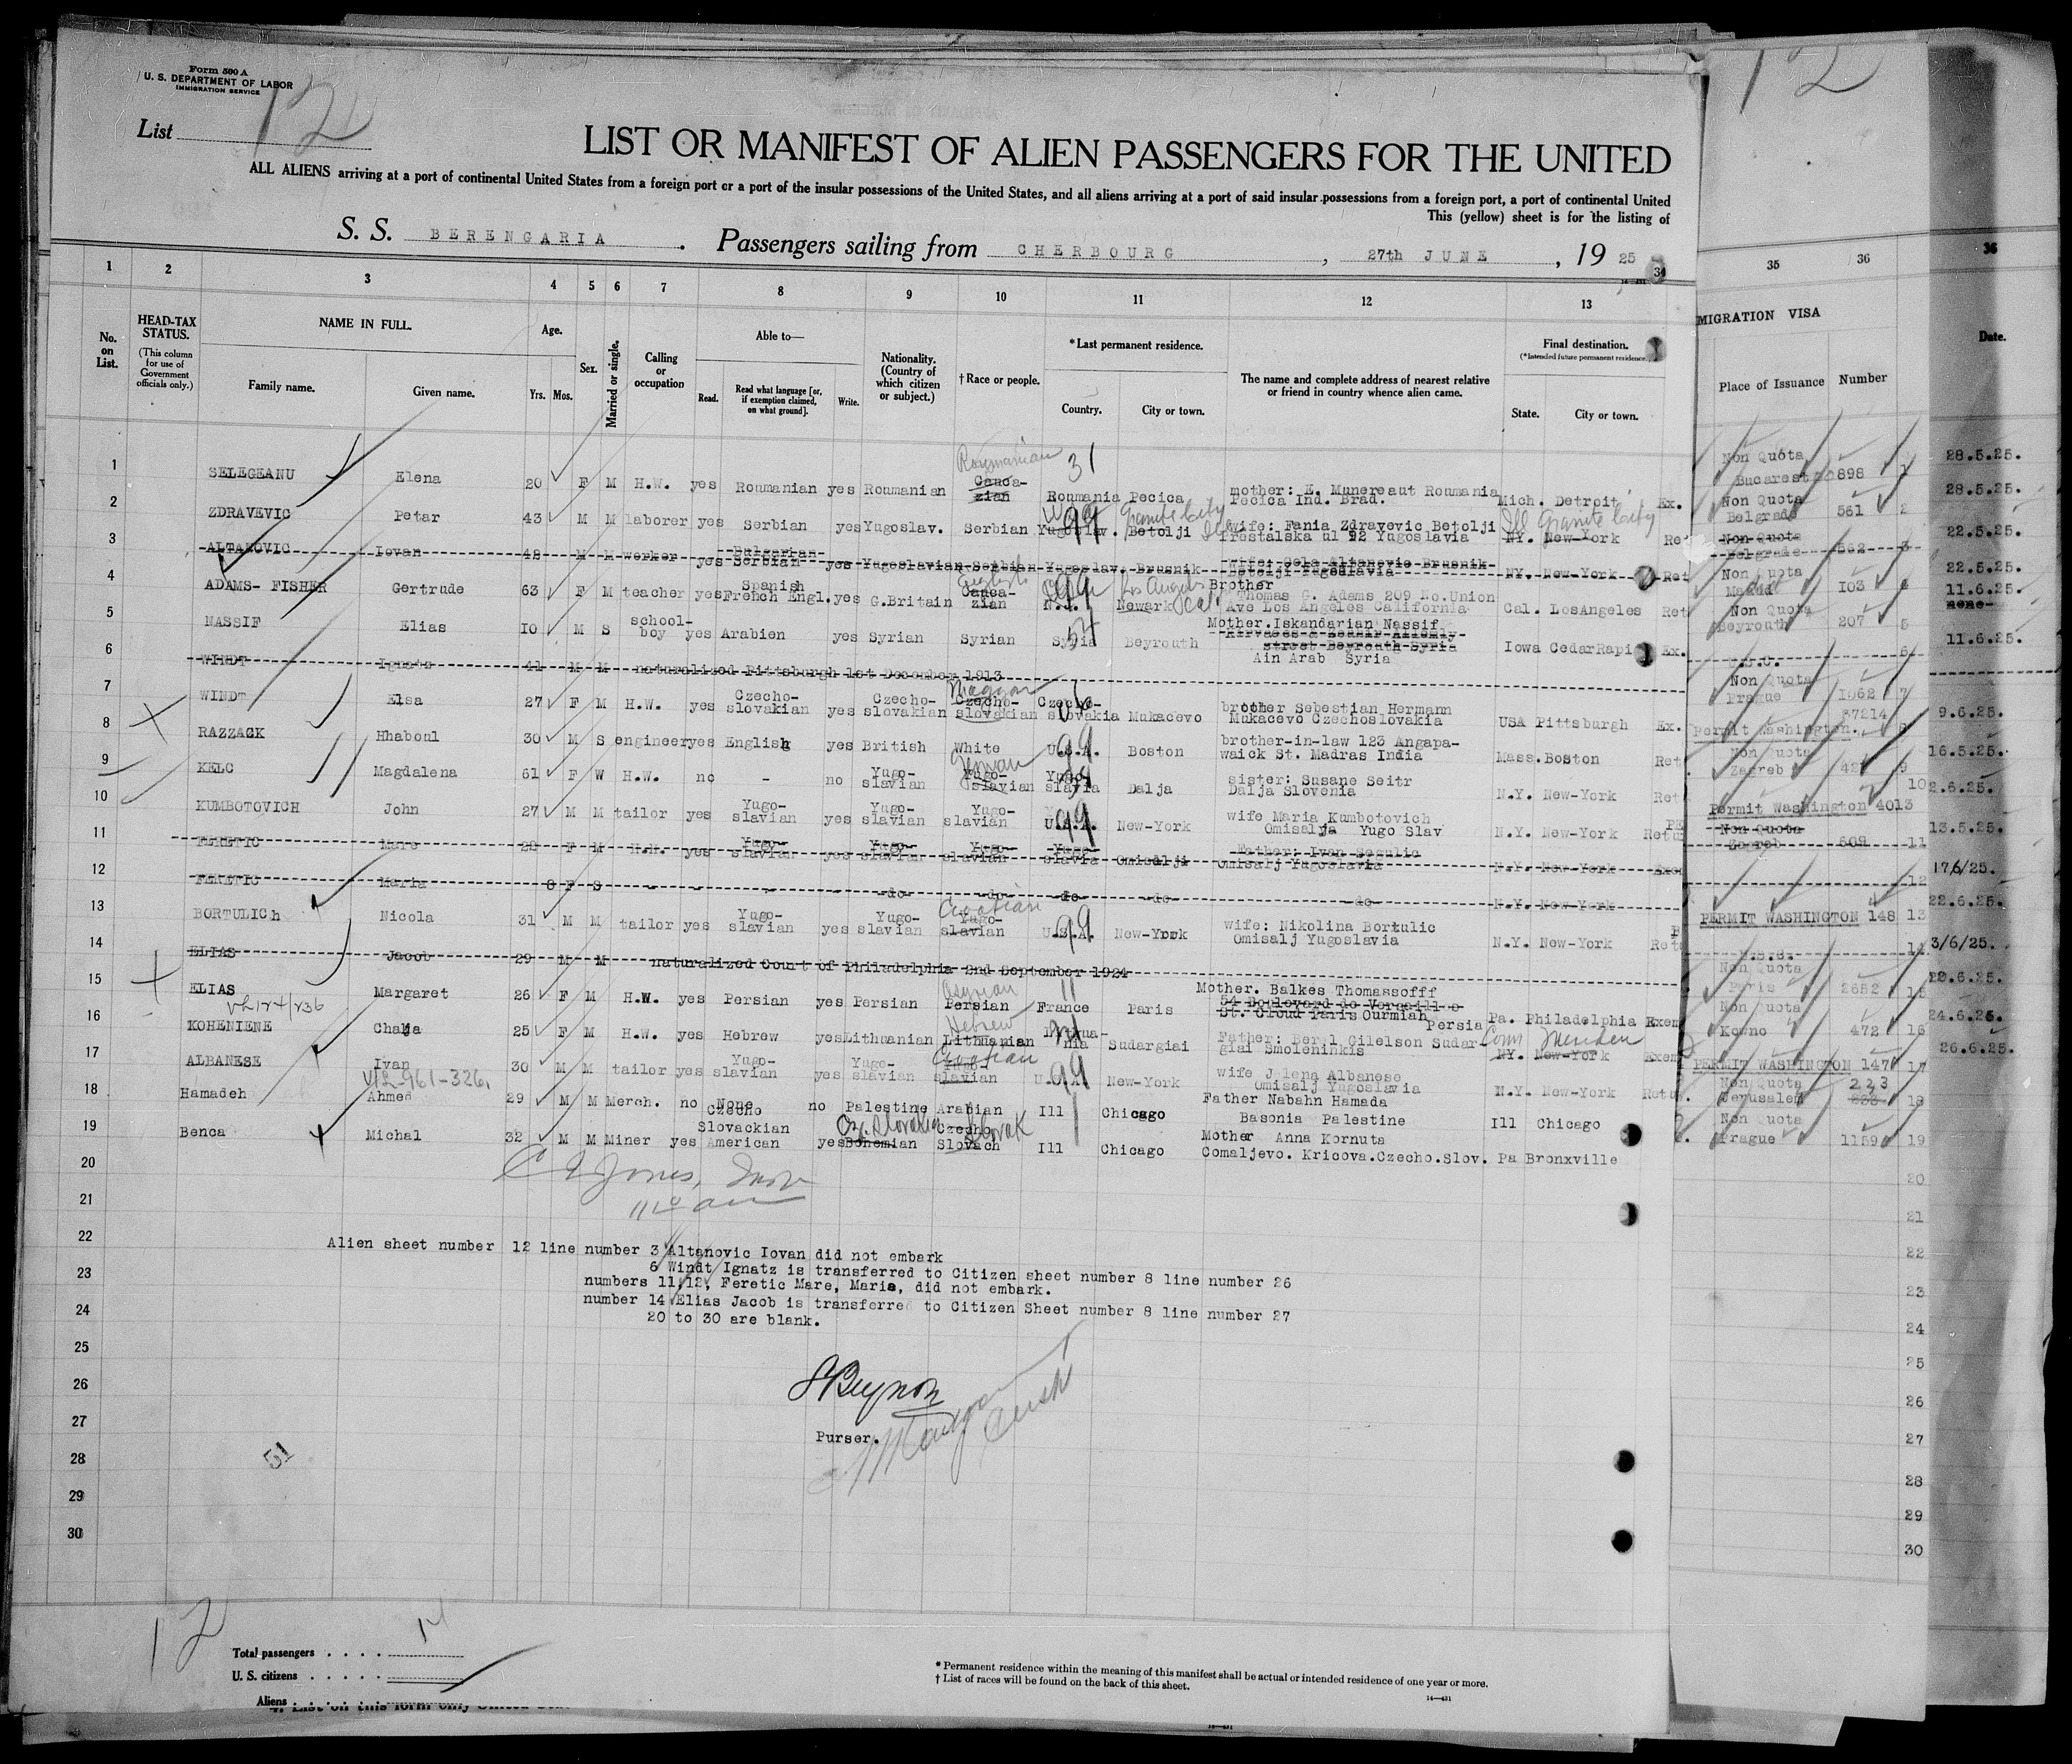 Form 500 A
U. S. DEPARTMENT OF LABOR
IMMIGRATION SERVICE
List 12
12
LIST OR MANIFEST OF ALIEN PASSENGERS FOR THE UNITED
ALL ALIENS arriving at a port of continental United States from a foreign port or a port of the insular possessions of the United States, and all aliens arriving at a port of said insular possessions from a foreign port, a port of continental United
This (yellow) sheet is for the listing of
S. S. BERENGARIA. Passengers sailing from CHERBOURG, 27th JUNE, 19 25
1 2 3 4 5 6 7 8 9 10 11 12 13 34 35 36 36
No. on List.
HEAD-TAX STATUS.
(This column for use of Government officials only.)
NAME IN FULL.
Family name. Given name.
Age. Yrs. Mos.
Sex.
Married or single.
Calling or occupation
Able to—
Read. Read what language [or, if exemption claimed, on what ground]. Write.
Nationality. (Country of which citizen or subject.)
†Race or people.
*Last permanent residence.
Country. City or town.
The name and complete address of nearest relative or friend in country whence alien came.
Final destination.
(*Intended future permanent residence.)
State. City or town.
MIGRATION VISA
Place of Issuance Number
Date.
1 SELEGEANU Elena 20 F M H.W. yes Roumanian yes Roumanian Cauca-zian Roumanian Roumania 31 Pecica mother: E. Munereaut Roumania Pecica Ind. Brad. Mich. Detroit Ex. Non Quota Bucarest 898 1 28.5.25.
2 ZDRAVEVIC Petar 43 M M laborer yes Serbian yes Yugoslav. Serbian Yugoslav. 99 Betolji Granite City wife: Fania Zdravevic Betolji Prestalska ul 92 Yugoslavia NY. New-York Ill Granite City Ret Non Quota Belgrade 561 2 28.5.25.
3 ALTANOVIC Iovan 48 M M worker yes Bulgarian Serbian yes Yugoslavian Serbian Yugoslav. Brusnik wife: Sela Altanovic Brusnik Betolji Yugoslavia NY. New-York Ret Non Quota Belgrade 562 3 22.5.25.
4 ADAMS- FISHER Gertrude 63 F M teacher yes Spanish French Engl. yes G.Britain Cauca-zian English N.J. 99 Newark Los Angeles Cal. Brother Thomas G. Adams 209 No.Union Ave Los Angeles California Cal. LosAngeles Ret Non Quota 103 4 22.5.25.
5 NASSIF Elias IO M S school-boy yes Arabien yes Syrian Syrian Syria Beyrouth Mother.Iskandarian Nassif street Beyrouth Syria Ain Arab Syria Iowa CedarRapi Ex. Non Quota Beyrouth 207 5 11.6.25. none
6 WINDT Ignatz 41 M M naturalized Pittsburgh 1st December 1913 6 11.6.25.
7 WINDT Elsa 27 F M H.W. yes Czecho-slovakian yes Czecho-slovakian Czecho-slovakian Magyar Czecho-slovakia Mukacevo brother Sebestian Hermann Mukacevo Czechoslovakia USA Pittsburgh Ex. Non Quota Prague 1062 7 9.6.25.
8 RAZZACK Hhaboul 30 M S engineer yes English yes British White U.S.A. 99 Boston brother-in-law 123 Angapa-waick St. Madras India Mass. Boston Ret Permit Washington. 37214 8 16.5.25.
9 KELC Magdalena 61 F W H.W. no - no Yugo-slavian Yugo-slavian German Yugo-slavia Dalja sister: Susane Seitr Dalja Slovenia N.Y. New-York Ret Non Quota Zagreb 9 2.6.25.
10 KUMBOTOVICH John 27 M M tailor yes Yugo-slavian yes Yugo-slavian Yugo-slavian U.S.A. 99 New-York wife Maria Kumbotovich Omisalja Yugo Slav N.Y. New-York Permit Washington 4013 10 13.5.25.
11 FERETIC Mare 28 F M H.W. yes Yugo-slavian yes Yugo-slavian Yugo-slavian Yugo-slavia Omisalji Father: Ivan Segulic Omisalj Yugoslavia N.Y. New-York Non Quota Zagreb 609 11 17/6/25.
12 FERETIC Maria 8 F S - - - - do- -do- do -do- -do- N.Y. New-York 12 22.6.25.
13 BORTULICh Nicola 31 M M tailor yes Yugo-slavian yes Yugo-slavian Yugo-slavian Croatian U.S.A. 99 New-York wife: Nikolina Bortulic Omisalj Yugoslavia N.Y. New-York PERMIT WASHINGTON 148 13 3/6/25.
14 ELIAS Jacob 29 M M naturalized Court of Philadelphia 2nd September 1924 14
15 ELIAS Margaret 26 F M H.W. yes Persian yes Persian Persian France Paris Mother. Balkes Thomassofff 54 Boulevard de Versailles St. Cloud Paris Ourmiah Persia Pa. Philadelphia Exem Non Quota Paris 2652 15 22.6.25.
16 KOHENIENE Chaja 25 F M H.W. yes Hebrew yes Lithuanian Lithuanian Hebrew Lithua-nia Sudargiai Father: Berel Cilelson Sudar-giai Smoleninkis NY. New-York Conn Meriden Exem Non Quota Kowno 472 16 24.6.25.
17 ALBANESE Ivan 30 M M tailor yes Yugo-slavian yes Yugo-slavian Yugo-slavian Croatian U.S.A. 99 New-York wife Jelena Albanese Omisalj Yugoslavia N.Y. New-York PERMIT WASHINGTON 147 17 26.6.25.
18 Hamadeh Ahmed 29 M M Merch. no None no Palestine Arabian Ill Chicago Father Nabahn Hamada Basonia Palestine Ill Chicago Non Quota Jerusalem 223 18
19 Benca Michal 32 M M Miner yes Czecho Slovackian American yes Bohemian Cz. Slovakia Czecho Slovach Slovak Ill Chicago Mother Anna Kornuta Comaljevo. Kricova.Czecho.Slov. Pa Bronxville Non Quota Prague 1159 19
20
21
22
23
24
25
26
27
28
29
30
Alien sheet number 12 line number 3 Altanovic Iovan did not embark
6 Windt Ignatz is transferred to Citizen sheet number 8 line number 26
numbers 11,12, Feretic Mare, Maria, did not embark.
number 14 Elias Jacob is transferred to Citizen Sheet number 8 line number 27
20 to 30 are blank.
Purser.
51
12
Total passengers . . . . 14
U. S. citizens . . . . .
Aliens
* Permanent residence within the meaning of this manifest shall be actual or intended residence of one year or more.
† List of races will be found on the back of this sheet.
14—431